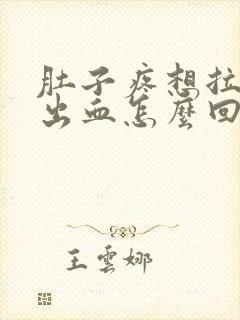 肚子疼想拉
出血怎麼回
王雲娜